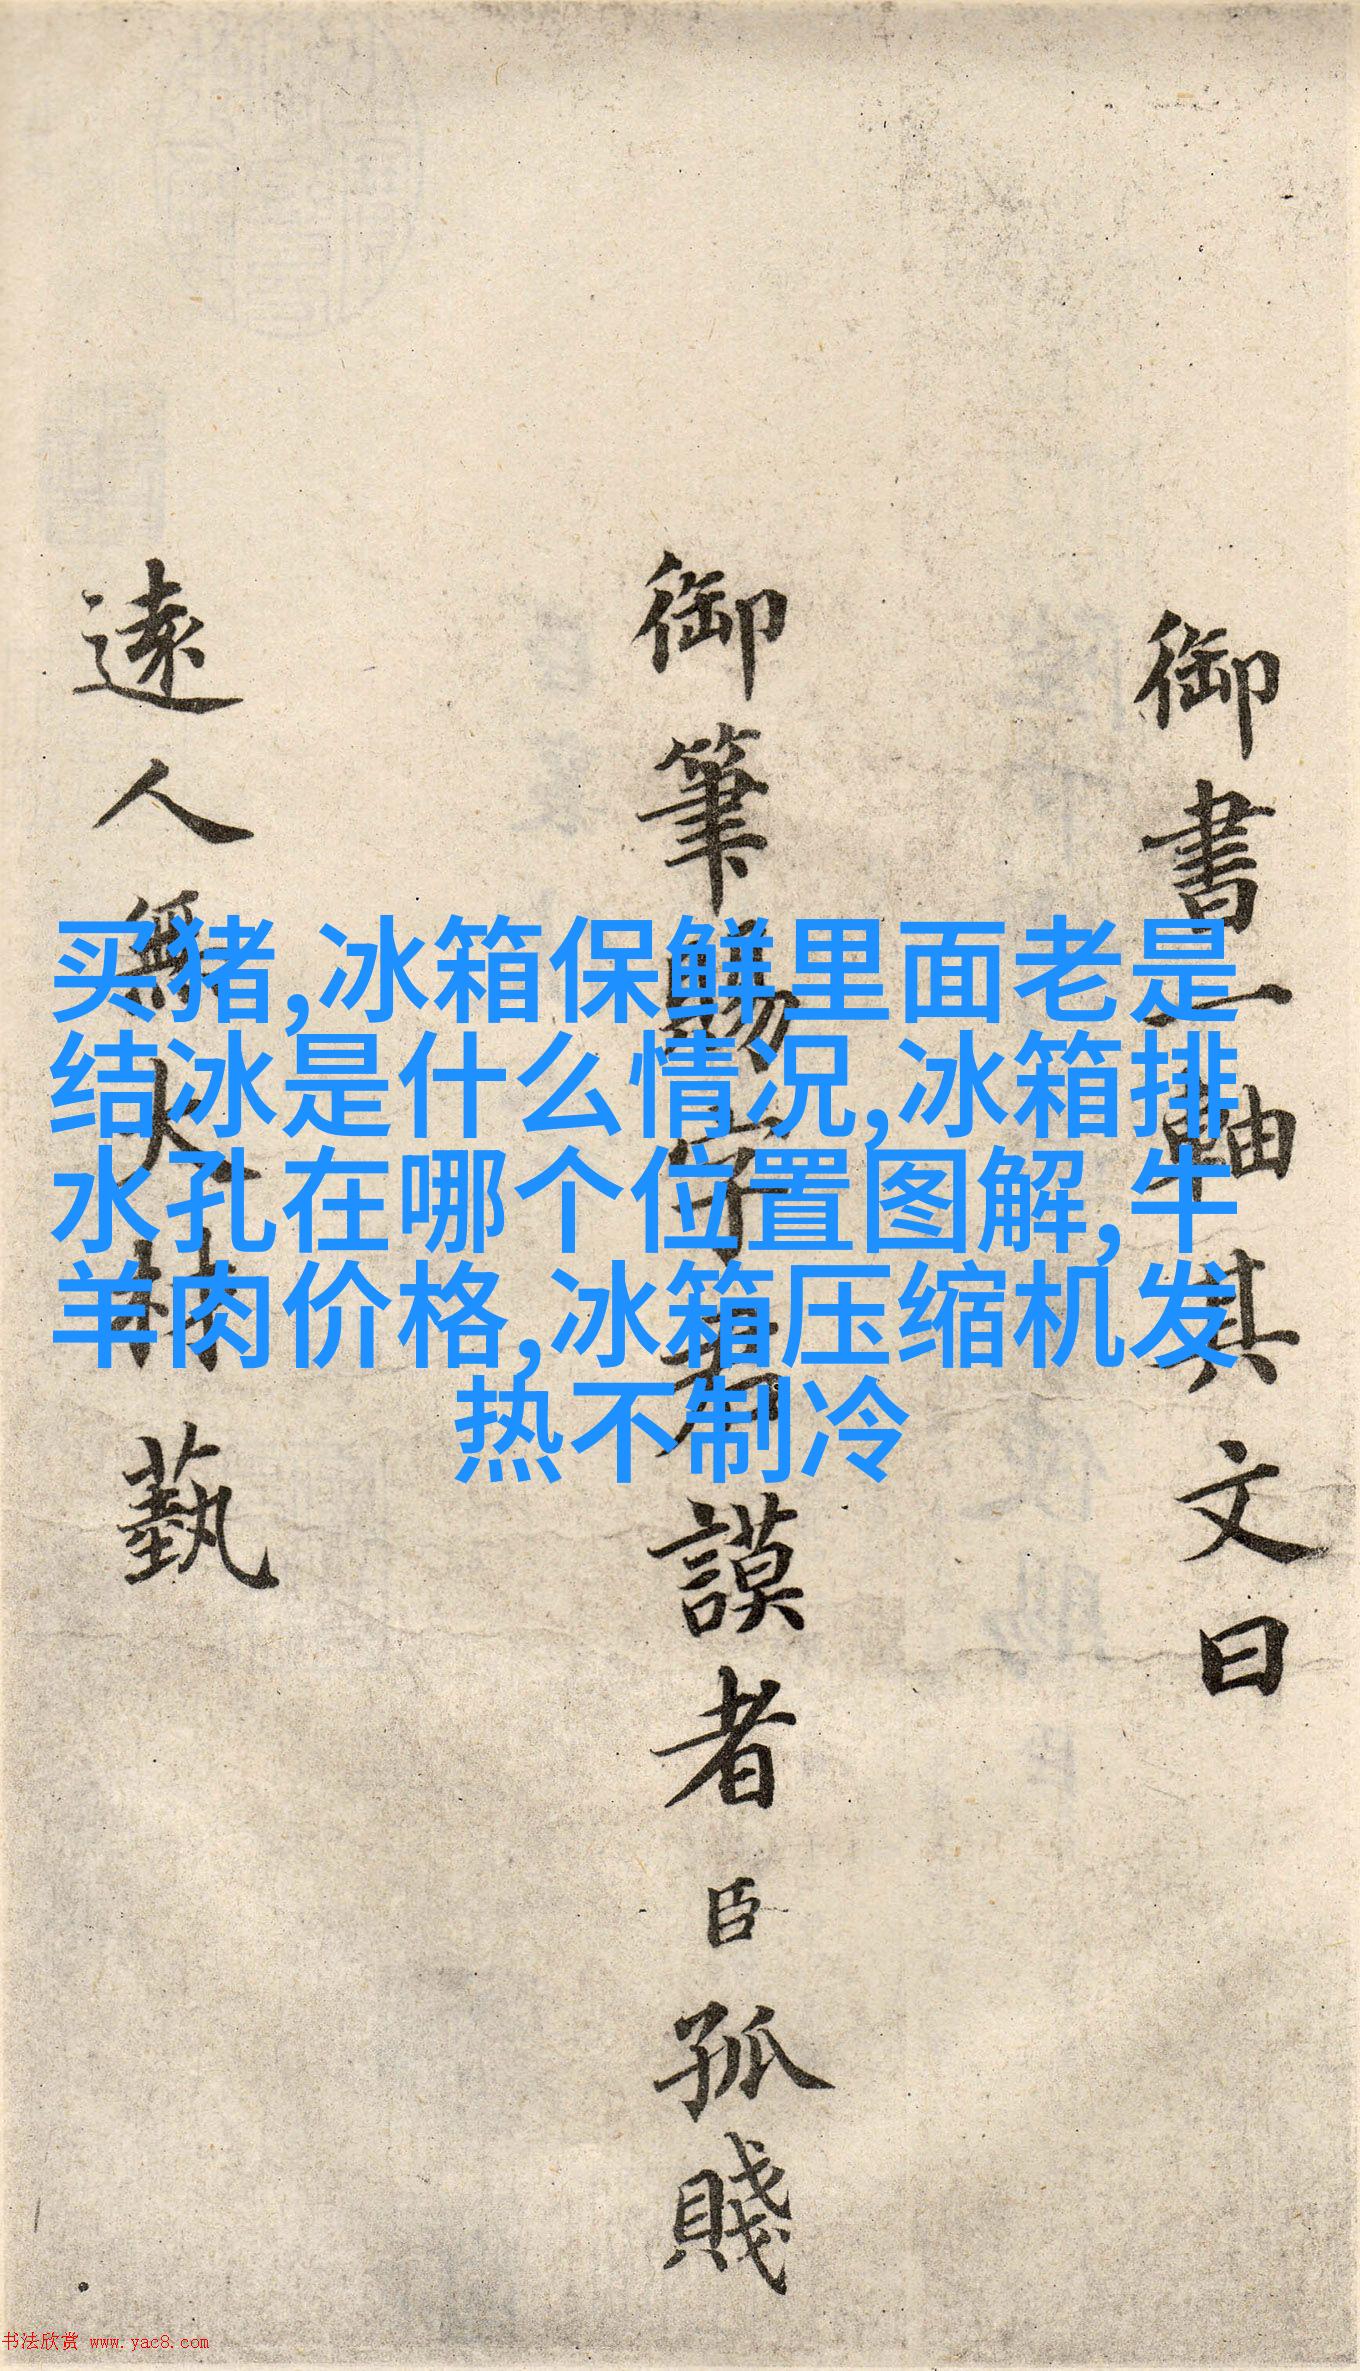 御書一軸其文曰
御筆賜字君謨者臣孤賤
遠人無大材藝
买猪,冰箱保鲜里面老是
结冰是什么情况,冰箱排
水孔在哪个位置图解,牛
羊肉价格,冰箱压缩机发
热不制冷
书法欣赏 www.yac8.com